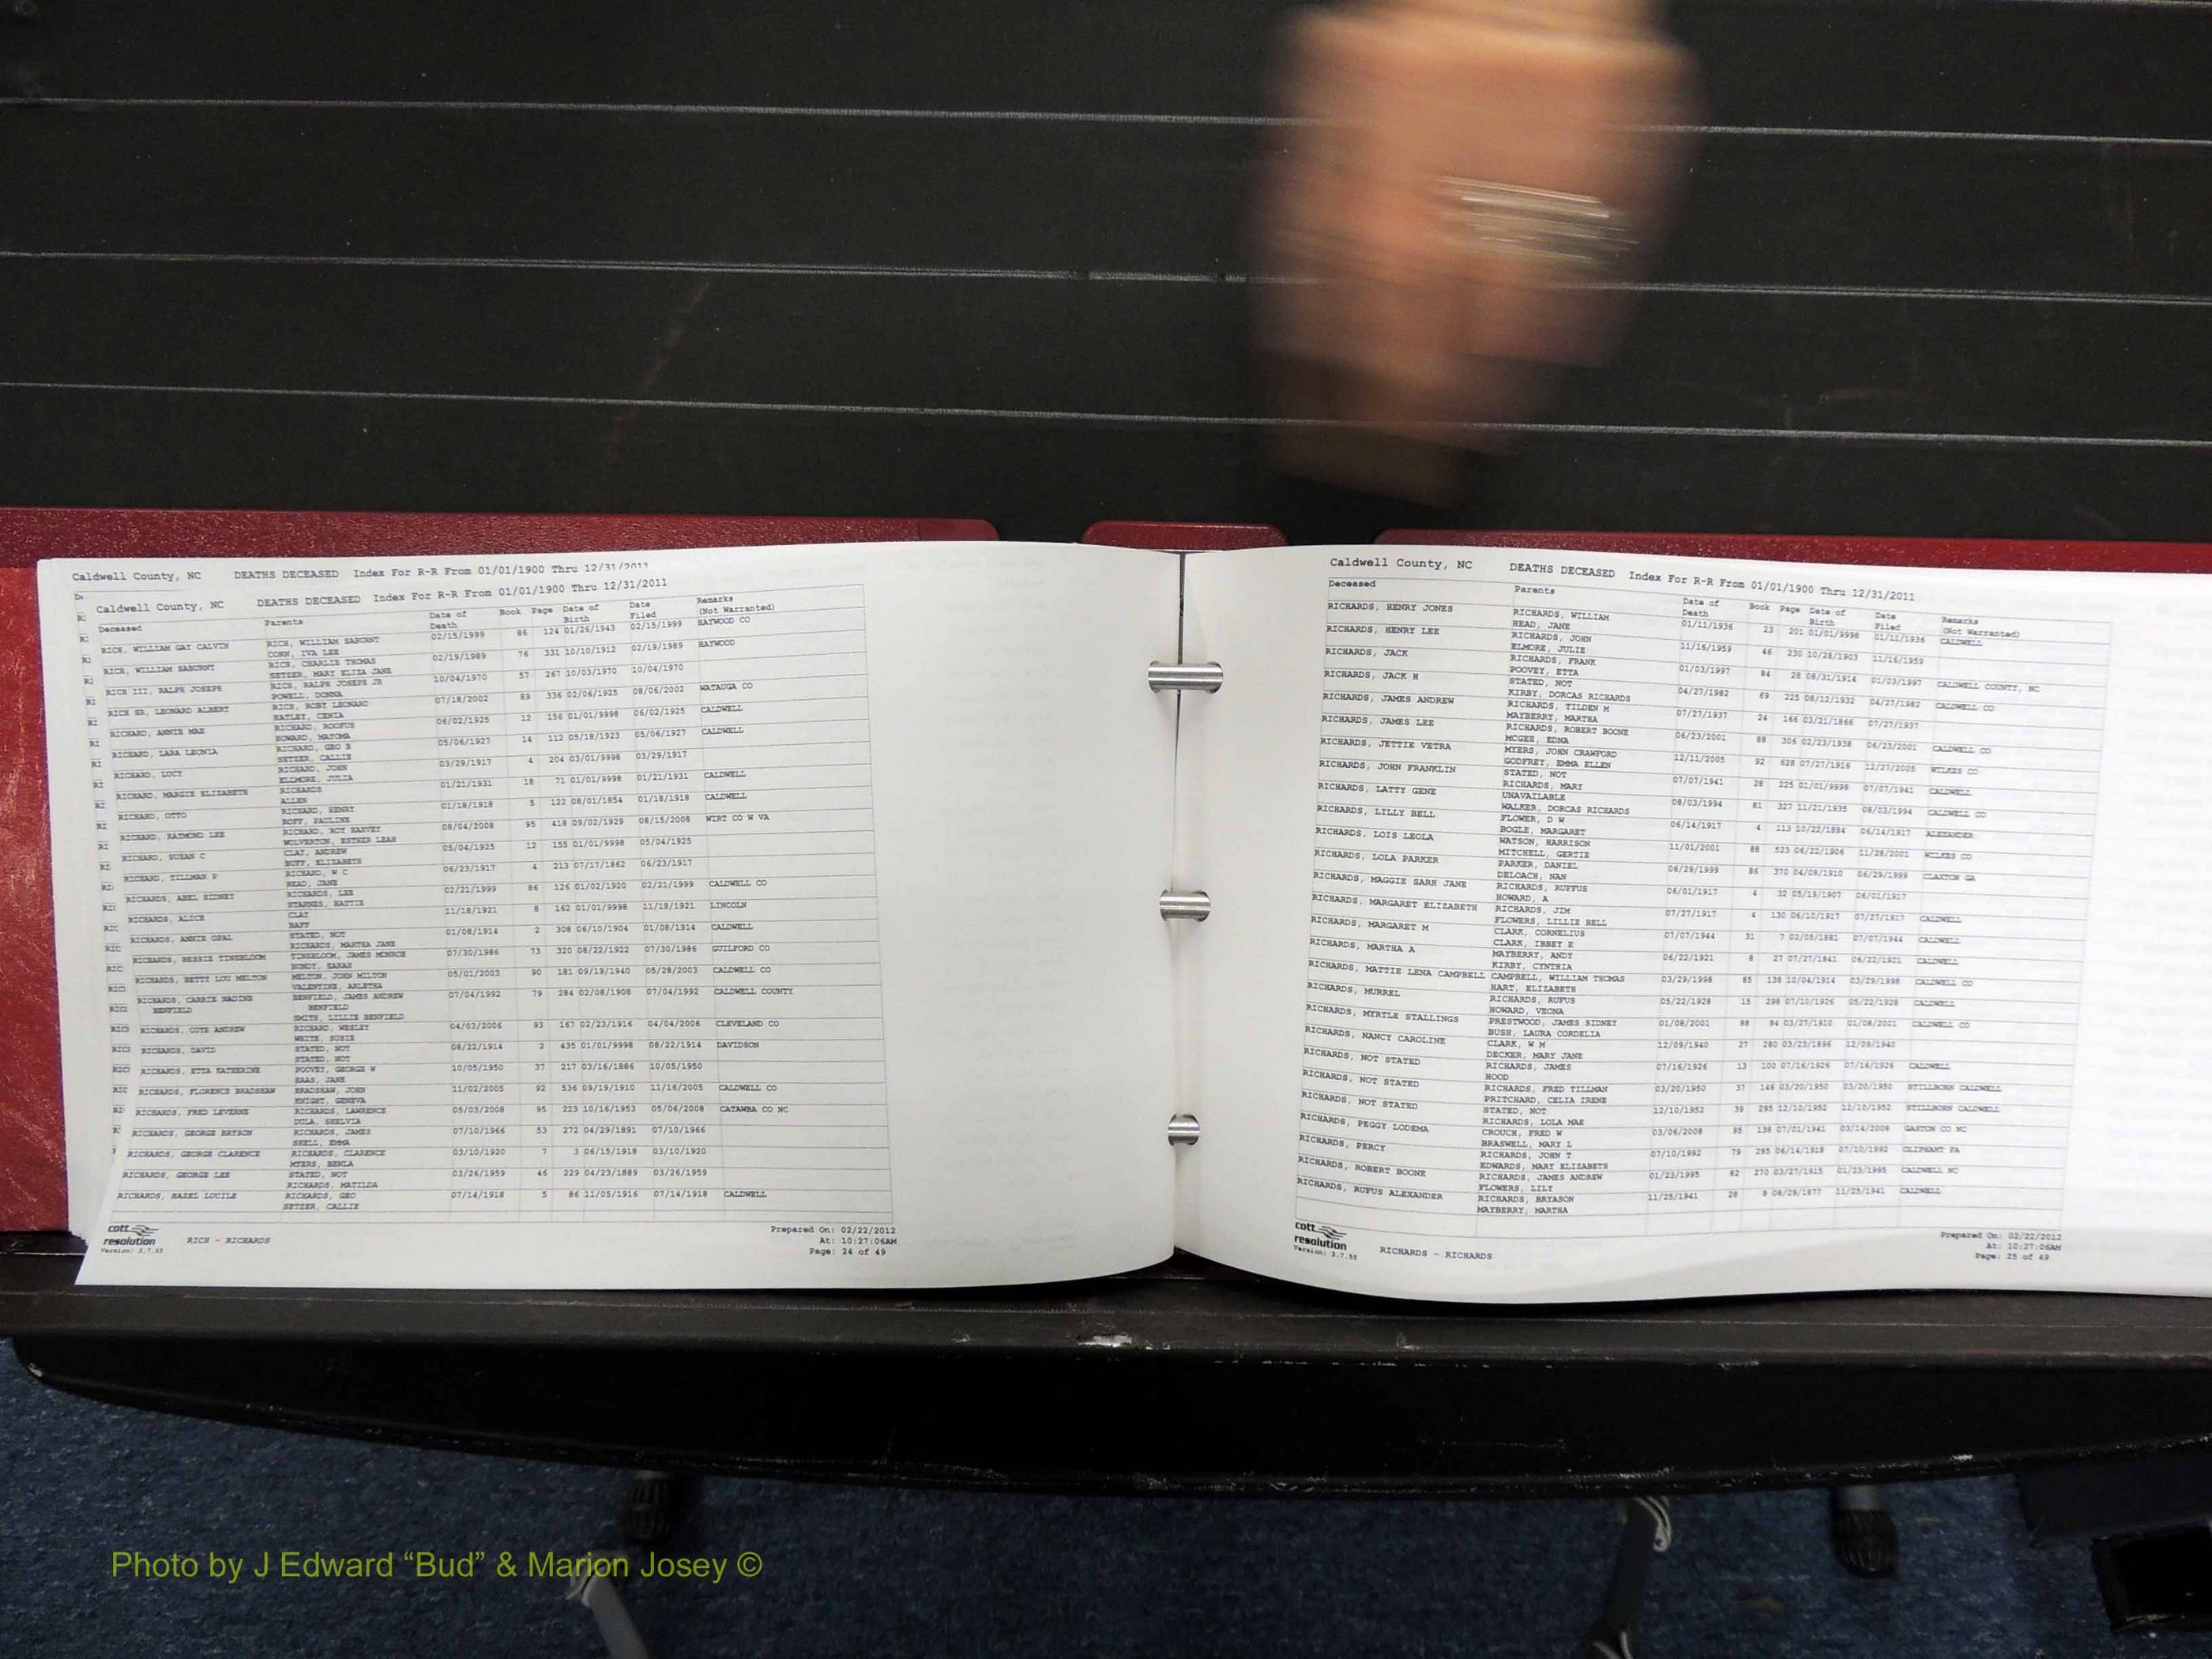 Caldwell County, NC DEATHS DECEASED Index For R-R From 01/01/1900 Thru 12/31/2011
Caldwell County, NC DEATHS DECEASED Index For R-R From 01/01/1900 Thru 12/31/2011
Deceased Parents Date of Death Book Page Date of Birth Date Filed Remarks (Not Warranted)
RICH, WILLIAM GAY CALVIN RICH, WILLIAM SABURNT 02/15/1999 86 124 01/26/1943 02/15/1999 HAYWOOD CO
CORN, IVA LEE
RICH, WILLIAM SABURNT RICH, CHARLIE THOMAS 02/19/1989 76 331 10/10/1912 02/19/1989 HAYWOOD
SETZER, MARY ELIZA JANE
RICH III, RALPH JOSEPH RICH, RALPH JOSEPH JR 10/04/1970 57 267 10/03/1970 10/04/1970
POWELL, DONNA
RICH SR, LEONARD ALBERT RICH, ROBY LEONARD 07/18/2002 89 336 02/06/1925 08/06/2002 WATAUGA CO
HATLEY, CENIA
RICHARD, ANNIE MAE RICHARD, ROOFUS 06/02/1925 12 156 01/01/9998 06/02/1925 CALDWELL
HOWARD, MAYOMA
RICHARD, LARA LEONIA RICHARD, GEO B 05/06/1927 14 112 05/18/1923 05/06/1927 CALDWELL
SETZER, CALLIE
RICHARD, LUCY RICHARD, JOHN 03/29/1917 4 204 03/01/9998 03/29/1917
ELLMORE, JULIA
RICHARD, MARGIE ELIZABETH RICHARDS 01/21/1931 18 71 01/01/9998 01/21/1931 CALDWELL
ALLEN
RICHARD, OTTO RICHARD, HENRY 01/18/1918 5 122 08/01/1854 01/18/1918 CALDWELL
ROFF, PAULINE
RICHARD, RAYMOND LEE RICHARD, ROY HARVEY 08/04/2008 95 418 09/02/1929 08/15/2008 WIRT CO W VA
WOLVERTON, ESTHER LEAH
RICHARD, SUSAN C CLAY, ANDREW 05/04/1925 12 155 01/01/9998 05/04/1925
BUFF, ELIZABETH
RICHARD, TILLMAN P RICHARD, W C 06/23/1917 4 213 07/17/1862 06/23/1917
HEAD, JANE
RICHARDS, ABEL SIDNEY RICHARDS, LEE 02/21/1999 86 126 01/02/1920 02/21/1999 CALDWELL CO
STARNES, HATTIE
RICHARDS, ALICE CLAY 11/18/1921 8 162 01/01/9998 11/18/1921 LINCOLN
BAFF
RICHARDS, ANNIE OPAL STATED, NOT 01/08/1914 2 308 06/10/1904 01/08/1914 CALDWELL
RICHARDS, MARTHA JANE
RICHARDS, BESSIE TINSBLOOM TINSBLOOM, JAMES MONROE 07/30/1986 73 320 08/22/1922 07/30/1986 GUILFORD CO
BUNDY, SARAH
RICHARDS, BETTY LOU MELTON MELTON, JOHN MILTON 05/01/2003 90 181 09/19/1940 05/28/2003 CALDWELL CO
VALENTINE, ARLETHA
RICHARDS, CARRIE NADINE BENFIELD, JAMES ANDREW 07/04/1992 79 284 02/08/1908 07/04/1992 CALDWELL COUNTY
BENFIELD BENFIELD
SMITH, LILLIE BENFIELD
RICHARDS, COTE ANDREW RICHARD, WESLEY 04/03/2006 93 167 02/23/1916 04/04/2006 CLEVELAND CO
WHITE, SUSIE
RICHARDS, DAVID STATED, NOT 08/22/1914 2 435 01/01/9998 08/22/1914 DAVIDSON
STATED, NOT
RICHARDS, ETTA KATHERINE POOVEY, GEORGE W 10/05/1950 37 217 03/16/1886 10/05/1950
HAAS, JANE
RICHARDS, FLORENCE BRADSHAW BRADSHAW, JOHN 11/02/2005 92 536 09/19/1910 11/16/2005 CALDWELL CO
KNIGHT, GENEVA
RICHARDS, FRED LEVERNE RICHARDS, LAWRENCE 05/03/2008 95 223 10/16/1953 05/06/2008 CATAWBA CO NC
DULA, SHELVIA
RICHARDS, GEORGE BRYSON RICHARDS, JAMES 07/10/1966 53 272 04/29/1891 07/10/1966
SHELL, EMMA
RICHARDS, GEORGE CLARENCE RICHARDS, CLARENCE 03/10/1920 7 3 06/15/1918 03/10/1920
MYERS, BENLA
RICHARDS, GEORGE LEE STATED, NOT 03/26/1959 46 229 04/23/1889 03/26/1959
RICHARDS, MATILDA
RICHARDS, HAZEL LUCILE RICHARDS, GEO 07/14/1918 5 86 11/05/1916 07/14/1918 CALDWELL
SETZER, CALLIE
cott resolution Version: 3.7.55 RICH - RICHARDS
Prepared On: 02/22/2012
At: 10:27:06AM
Page: 24 of 49
Caldwell County, NC DEATHS DECEASED Index For R-R From 01/01/1900 Thru 12/31/2011
Deceased Parents Date of Death Book Page Date of Birth Date Filed Remarks (Not Warranted)
RICHARDS, HENRY JONES RICHARDS, WILLIAM 01/11/1936 23 201 01/01/9998 01/11/1936 CALDWELL
HEAD, JANE
RICHARDS, HENRY LEE RICHARDS, JOHN 11/16/1959 46 230 10/28/1903 11/16/1959
ELMORE, JULIE
RICHARDS, JACK RICHARDS, FRANK 01/03/1997 84 28 08/31/1914 01/03/1997 CALDWELL COUNTY, NC
POOVEY, ETTA
RICHARDS, JACK H STATED, NOT 04/27/1982 69 225 08/12/1932 04/27/1982 CALDWELL CO
KIRBY, DORCAS RICHARDS
RICHARDS, JAMES ANDREW RICHARDS, TILDEN M 07/27/1937 24 166 03/21/1866 07/27/1937
MAYBERRY, MARTHA
RICHARDS, JAMES LEE RICHARDS, ROBERT BOONE 06/23/2001 88 306 02/23/1938 06/23/2001 CALDWELL CO
MCGEE, EDNA
RICHARDS, JETTIE VETRA MYERS, JOHN CRAWFORD 12/11/2005 92 628 07/27/1916 12/27/2005 WILKES CO
GODFREY, EMMA ELLEN
RICHARDS, JOHN FRANKLIN STATED, NOT 07/07/1941 28 225 01/01/9998 07/07/1941 CALDWELL
RICHARDS, MARY
RICHARDS, LATTY GENE UNAVAILABLE 08/03/1994 81 327 11/21/1935 08/03/1994 CALDWELL CO
WALKER, DORCAS RICHARDS
RICHARDS, LILLY BELL FLOWER, D W 06/14/1917 4 113 10/22/1884 06/14/1917 ALEXANDER
BOGLE, MARGARET
RICHARDS, LOIS LEOLA WATSON, HARRISON 11/01/2001 88 523 06/22/1906 11/28/2001 WILKES CO
MITCHELL, GERTIE
RICHARDS, LOLA PARKER PARKER, DANIEL 06/29/1999 86 370 04/08/1910 06/29/1999 CLAXTON GA
DELOACH, NAN
RICHARDS, MAGGIE SARH JANE RICHARDS, RUFFUS 06/01/1917 4 32 05/19/1907 06/01/1917
HOWARD, A
RICHARDS, MARGARET ELIZABETH RICHARDS, JIM 07/27/1917 4 130 06/10/1917 07/27/1917 CALDWELL
FLOWERS, LILLIE BELL
RICHARDS, MARGARET M CLARK, CORNELIUS 07/07/1944 31 7 02/05/1881 07/07/1944 CALDWELL
CLARK, IBBEY E
RICHARDS, MARTHA A MAYBERRY, ANDY 06/22/1921 8 27 07/27/1841 06/22/1921 CALDWELL
KIRBY, CYNTHIA
RICHARDS, MATTIE LENA CAMPBELL CAMPBELL, WILLIAM THOMAS 03/29/1998 85 138 10/04/1914 03/29/1998 CALDWELL CO
HART, ELIZABETH
RICHARDS, MURREL RICHARDS, RUFUS 05/22/1928 15 298 07/10/1926 05/22/1928 CALDWELL
HOWARD, VEONA
RICHARDS, MYRTLE STALLINGS PRESTWOOD, JAMES SIDNEY 01/08/2001 88 84 03/27/1910 01/08/2001 CALDWELL CO
BUSH, LAURA CORDELIA
RICHARDS, NANCY CAROLINE CLARK, W M 12/09/1940 27 280 03/23/1896 12/09/1940
DECKER, MARY JANE
RICHARDS, NOT STATED RICHARDS, JAMES 07/16/1926 13 100 07/16/1926 07/16/1926 CALDWELL
HOOD
RICHARDS, NOT STATED RICHARDS, FRED TILLMAN 03/20/1950 37 146 03/20/1950 03/20/1950 STILLBORN CALDWELL
PRITCHARD, CELIA IRENE
RICHARDS, NOT STATED STATED, NOT 12/10/1952 39 295 12/10/1952 12/10/1952 STILLBORN CALDWELL
RICHARDS, LOLA MAE
RICHARDS, PEGGY LODEMA CROUCH, FRED W 03/06/2008 95 138 07/01/1941 03/14/2008 GASTON CO NC
BRASWELL, MARY L
RICHARDS, PERCY RICHARDS, JOHN T 07/10/1992 79 285 06/14/1918 07/10/1992 OLIPHANT PA
EDWARDS, MARY ELIZABETH
RICHARDS, ROBERT BOONE RICHARDS, JAMES ANDREW 01/23/1995 82 270 03/27/1915 01/23/1995 CALDWELL NC
FLOWERS, LILY
RICHARDS, RUFUS ALEXANDER RICHARDS, BRYASON 11/25/1941 28 8 08/29/1877 11/25/1941 CALDWELL
MAYBERRY, MARTHA
cott resolution Version: 3.7.55 RICHARDS - RICHARDS
Prepared On: 02/22/2012
At: 10:27:06AM
Page: 25 of 49
Photo by J Edward “Bud” & Marion Josey ©